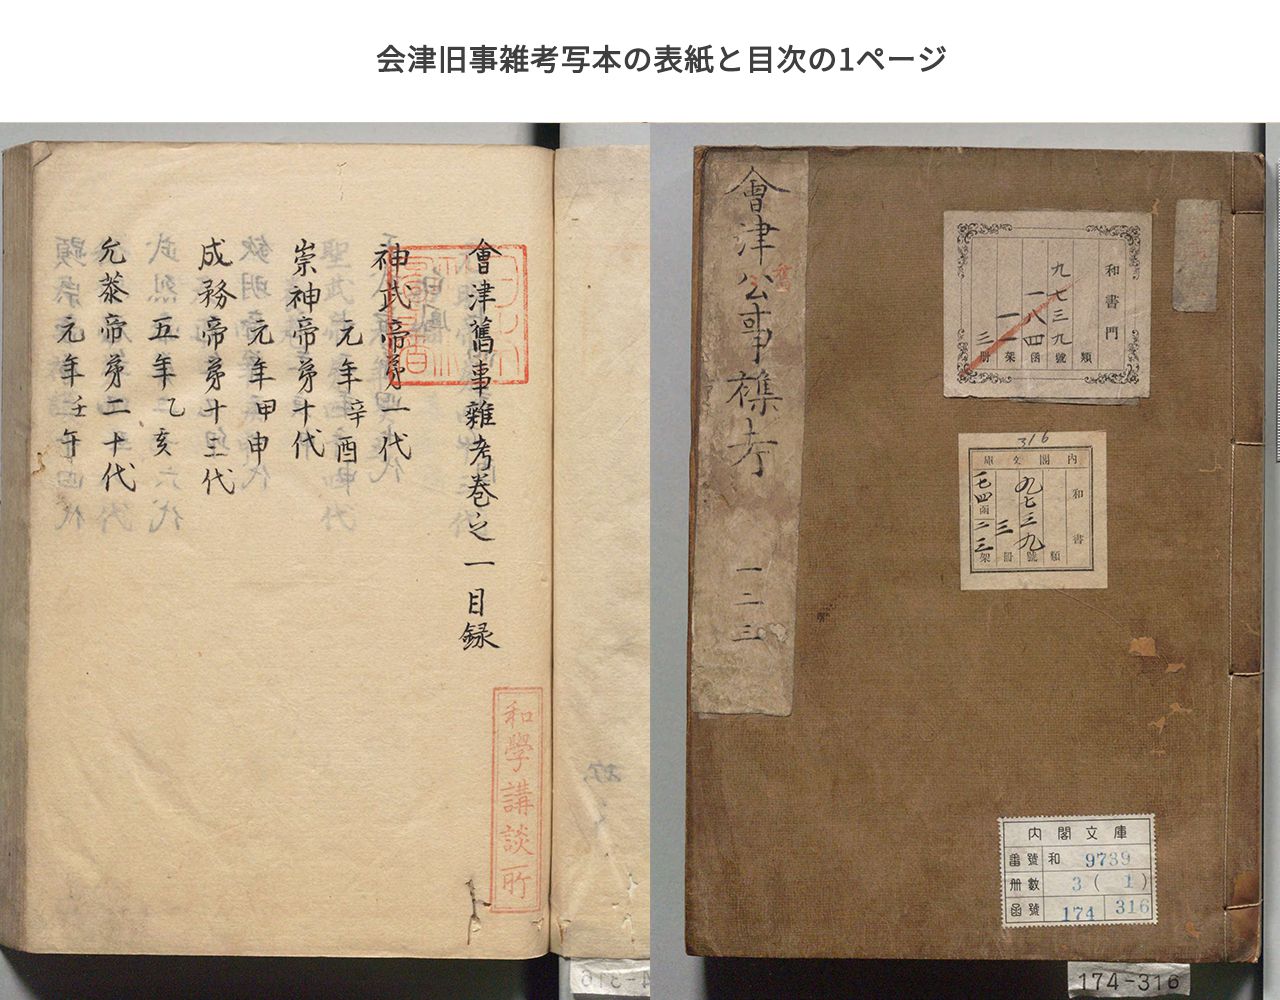 会津旧事雑考写本の表紙と目次の1ページ
會津舊事雜考巻之一目録
神武帝第一代
元年辛酉
崇神帝第十代
元年甲申
成務帝第十三代
五年乙亥
允恭帝第二十代
元年壬午
和學講談所
會津公事襍考 一二三
舊
和書門
類
九七三九號
一八四函
一一架
三冊
316
内閣文庫
和書
類
九七三九號
三冊
架
内閣文庫
番號 和 9739
册數 3(1)
函號 174 316
174-316